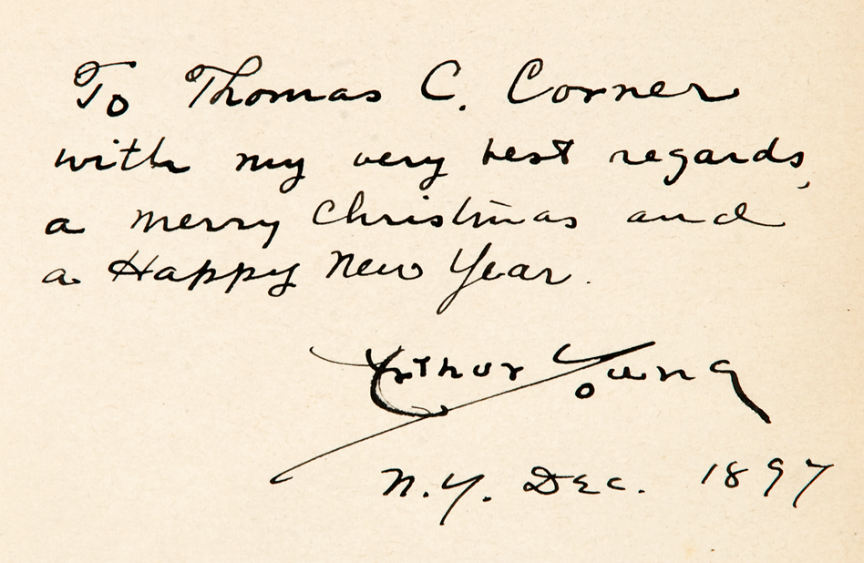 To Thomas C. Corner
with my very best regards,
a merry Christmas and
a Happy New Year.
Arthur Young
N.Y. Dec. 1897